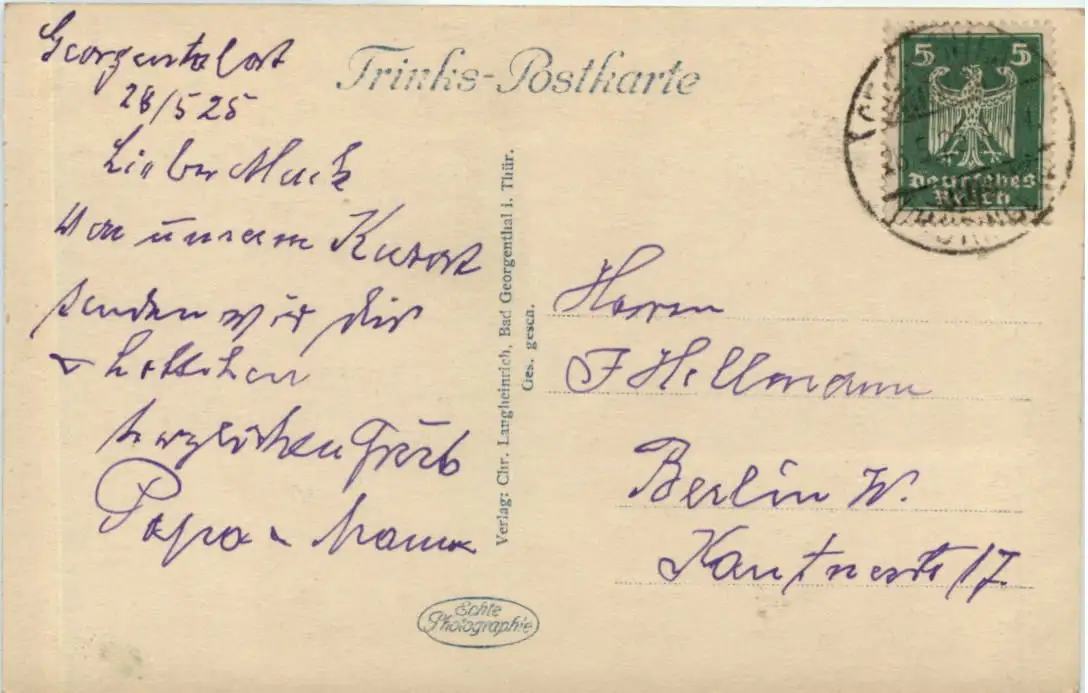 Georgental Ort
28/5 25
Lieber Mack
Von unserem Kurort
senden wir dir
& Lottchen
herzlichen Gruß
Papa & Mama
Trinks-Postkarte
Verlag: Chr. Langheinrich, Bad Georgenthal i. Thür.
Ges. gesch.
Echte
Photographie
5 5
Deutsches
Reich
Herrn
F Hellmann
Berlin W.
17